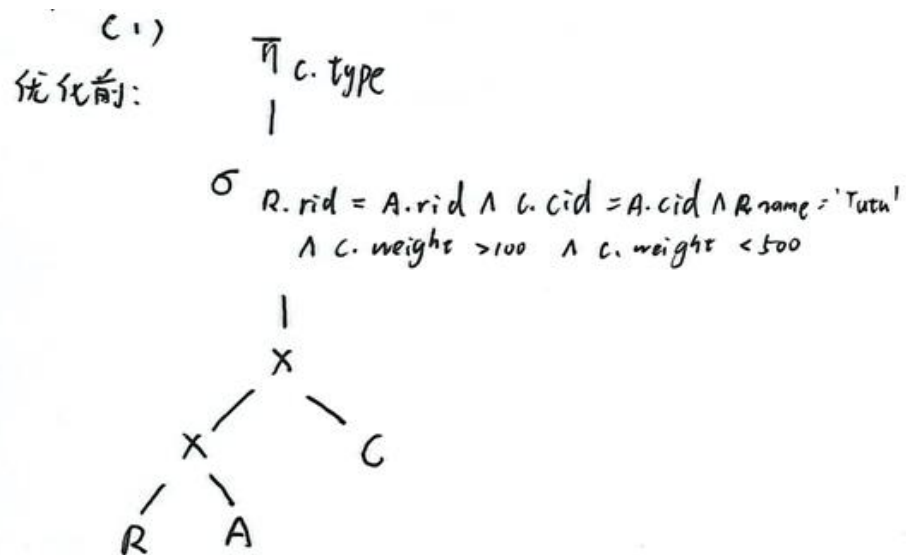 (1)
π c. type
优化前:
σ R. rid = A. rid ∧ C. cid = A. cid ∧ R. name = 'Tutu'
∧ C. weight >100 ∧ C. weight <500
X
X C
R A